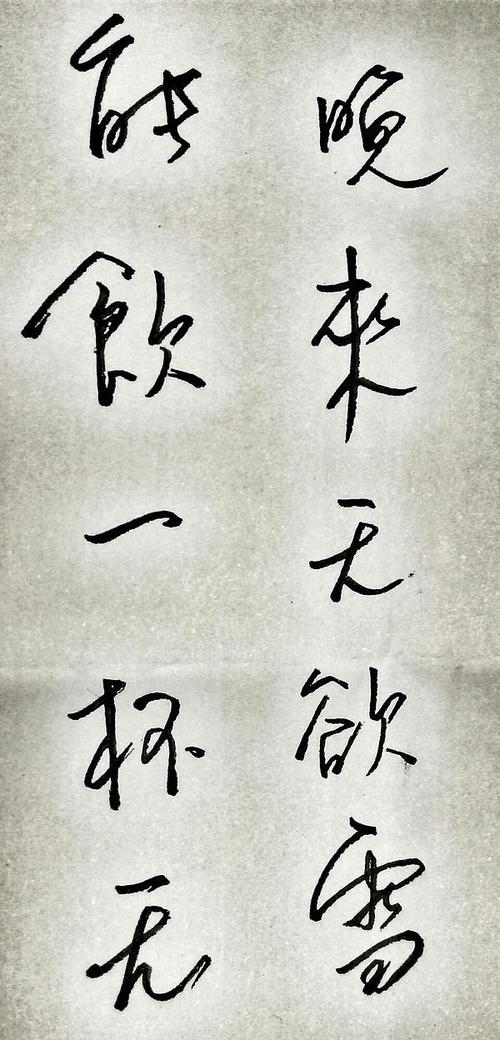 晚來天欲雪
能飲一杯无